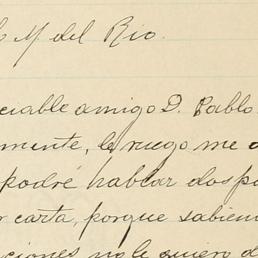 M del Rio.
ciable amigo D. Pablo
mente, le ruego me
podré hablar dos pa
carta, porque sabien
ciones no le quiero d